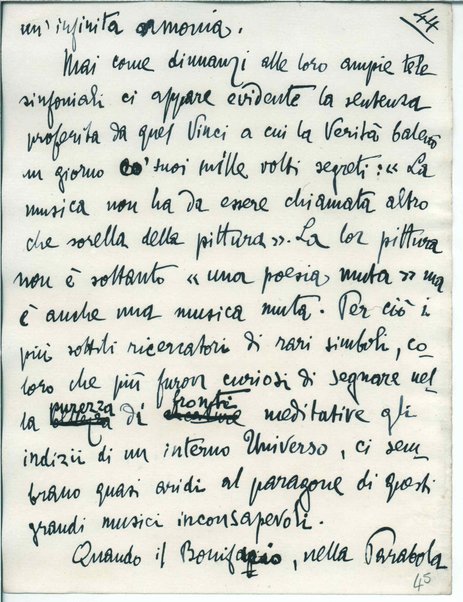 44
un'infinita armonia.
Mai come dinnanzi alle loro ampie tele
sinfoniali ci appare evidente la sentenza
proferita da quel Vinci a cui la Verità balenò
un giorno co' suoi mille volti segreti: « La
musica non ha da essere chiamata altro
che sorella della pittura ». La lor pittura
non è soltanto « una poesia muta » ma
è anche una musica muta. Per ciò i
più sottili ricercatori di rari simboli, co-
loro che più furon curiosi di segnare nel-
la purezza di fronti meditative gli
indizii di un interno Universo, ci sem-
brano quasi aridi al paragone di questi
grandi musici inconsapevoli.
Quando il Bonifacio, nella Parabola
45